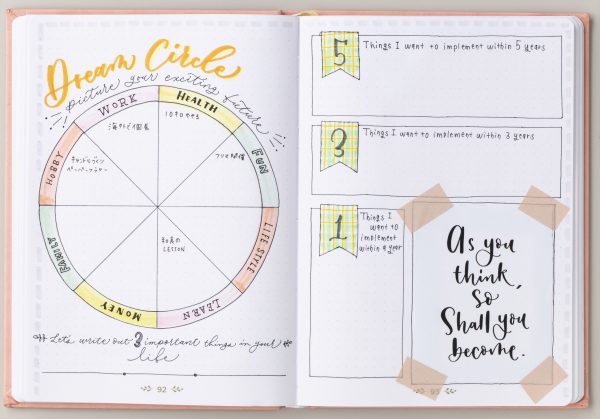 Dream Circle
picture your exciting future
WORK
HEALTH
FUN
LIFE STYLE
LEARN
MONEY
FAMILY
HOBBY
10キロやせる
フリマ開催
キャンドルづくり
ペーパーフラワー
LESSON
Let's write out 3 important things in your
life
92
5
Things I want to implement within 5 years
3
Things I want to implement within 3 years
1
Things I
want to
implement
within a year
As you
think,
so
Shall you
become.
93